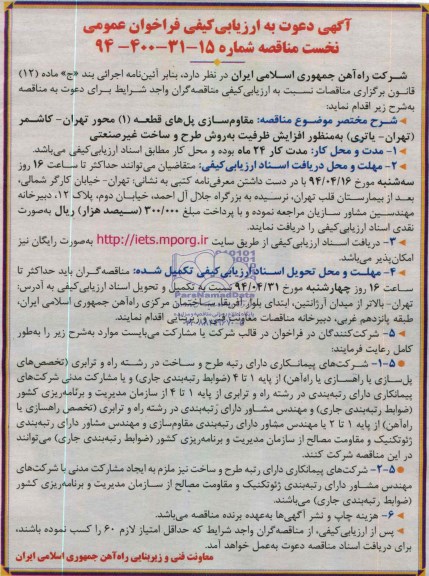 آگهی دعوت به ارزیابی‌کیفی فراخوان عمومی
نخست مناقصه شماره ۱۵-۳۱-۴۰۰-۹۴
شرکت راه‌آهن جمهوری اسلامی ایران در نظر دارد، بنابر آئین‌نامه اجرائی بند «ج» ماده (۱۲)
قانون برگزاری مناقصات نسبت به ارزیابی‌کیفی مناقصه‌گران واجد شرایط برای دعوت به مناقصه
به‌شرح زیر اقدام نماید:
شرح مختصر موضوع مناقصه: مقاوم‌سازی پل‌های قطعه (۱) محور تهران- کاشمر
(تهران- یاتری) به‌منظور افزایش ظرفیت به‌روش طرح و ساخت غیرصنعتی
۱- مدت و محل کار: مدت کار ۲۴ ماه بوده و محل کار مطابق اسناد ارزیابی‌کیفی می‌باشد.
۲- مهلت و محل دریافت اسناد ارزیابی‌کیفی: متقاضیان می‌توانند حداکثر تا ساعت ۱۶ روز
سه‌شنبه مورخ ۹۴/۰۴/۱۶ با در دست داشتن معرفی‌نامه کتبی به نشانی: تهران- خیابان کارگر شمالی،
بعد از بیمارستان قلب تهران، نرسیده به بزرگراه جلال آل احمد، خیابان دوم، پلاک ۱۲، دبیرخانه
مهندسین مشاور سازیان مراجعه نموده و با پرداخت مبلغ ۳۰۰/۰۰۰ (سیصد هزار) ریال به‌صورت
نقدی اسناد ارزیابی‌کیفی را دریافت نمایند.
۳- دریافت اسناد ارزیابی‌کیفی از طریق سایت http://iets.mporg.ir به‌صورت رایگان نیز
امکان‌پذیر می‌باشد.
۴- مهلت و محل تحویل اسناد ارزیابی‌کیفی تکمیل شده: مناقصه‌گران باید حداکثر تا
ساعت ۱۶ روز چهارشنبه مورخ ۹۴/۰۴/۳۱ نسبت به تکمیل و تحویل اسناد ارزیابی‌کیفی به آدرس،
تهران- بالاتر از میدان آرژانتین، ابتدای بلوار آفریقا، ساختمان مرکزی راه‌آهن جمهوری اسلامی ایران،
طبقه پانزدهم غربی، دبیرخانه مناقصات معاونت فنی و زیربنایی اقدام نمایند.
۵- شرکت‌کنندگان در فراخوان در قالب شرکت یا مشارکت می‌بایست موارد به‌شرح زیر را به‌طور
کامل رعایت فرمایند:
۵-۱- شرکت‌های پیمانکاری دارای رتبه طرح و ساخت در رشته راه و ترابری (تخصص‌های
پل‌سازی یا راهسازی یا راه‌آهن) از پایه ۱ تا ۴ (ضوابط رتبه‌بندی جاری) و یا مشارکت مدنی شرکت‌های
پیمانکاری دارای رتبه‌بندی در رشته راه و ترابری از پایه ۱ تا ۴ از سازمان مدیریت و برنامه‌ریزی کشور
(ضوابط رتبه‌بندی جاری) و مهندس مشاور دارای رتبه‌بندی در رشته راه و ترابری (تخصص راهسازی یا
راه‌آهن) از پایه ۱ تا ۲ یا مهندس مشاور دارای رتبه‌بندی مقاوم‌سازی و مهندس مشاور دارای رتبه‌بندی
ژئوتکنیک و مقاومت مصالح از سازمان مدیریت و برنامه‌ریزی کشور (ضوابط رتبه‌بندی جاری) می‌توانند
در این مناقصه شرکت کنند.
۵-۲- شرکت‌های پیمانکاری دارای رتبه طرح و ساخت نیز ملزم به ایجاد مشارکت مدنی با شرکت‌های
مهندس مشاور دارای رتبه‌بندی ژئوتکنیک و مقاومت مصالح از سازمان مدیریت و برنامه‌ریزی کشور
(ضوابط رتبه‌بندی جاری) می‌باشند.
۶- هزینه چاپ و نشر آگهی‌ها به‌عهده برنده مناقصه می‌باشد.
پس از ارزیابی‌کیفی، از مناقصه‌گران واجد شرایط که حداقل امتیاز لازم ۶۰ را کسب نموده باشند،
برای دریافت اسناد مناقصه دعوت به‌عمل خواهد آمد.
معاونت فنی و زیربنایی راه‌آهن جمهوری اسلامی ایران